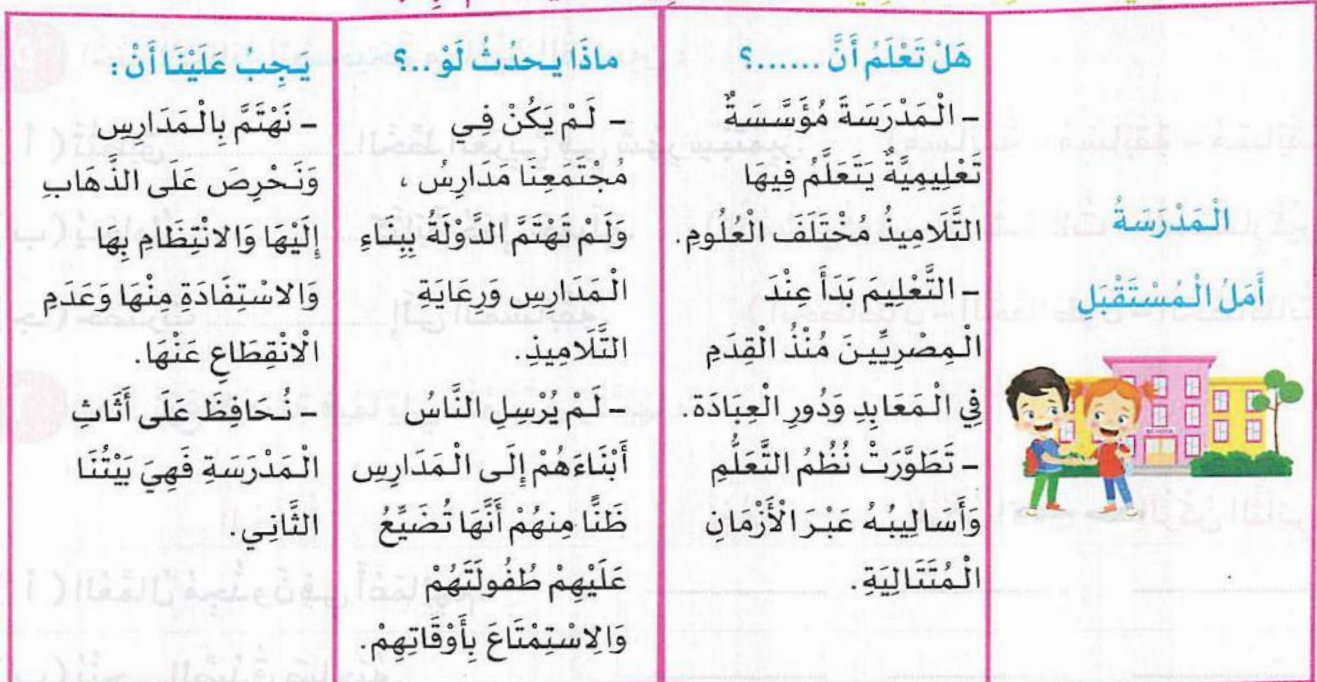 الْمَدْرَسَةُ
أَمَلُ الْمُسْتَقْبَلِ
هَلْ تَعْلَمُ أَنَّ ......؟
- الْمَدْرَسَةَ مُؤَسَّسَةٌ
تَعْلِيمِيَّةٌ يَتَعَلَّمُ فِيهَا
التَّلَامِيذُ مُخْتَلَفَ الْعُلُومِ.
- التَّعْلِيمَ بَدَأَ عِنْدَ
الْمِصْرِيِّينَ مُنْذُ الْقِدَمِ
فِي الْمَعَابِدِ وَدُورِ الْعِبَادَةِ.
- تَطَوَّرَتْ نُظُمُ التَّعَلُّمِ
وَأَسَالِيبُهُ عَبْرَ الْأَزْمَانِ
الْمُتَتَالِيَةِ.
مَاذَا يَحْدُثُ لَوْ ..؟
- لَمْ يَكُنْ فِي
مُجْتَمَعِنَا مَدَارِسُ ،
وَلَمْ تَهْتَمَّ الدَّوْلَةُ بِبِنَاءِ
الْمَدَارِسِ وَرِعَايَةِ
التَّلَامِيذِ.
- لَمْ يُرْسِلِ النَّاسُ
أَبْنَاءَهُمْ إِلَى الْمَدَارِسِ
ظَنًّا مِنْهُمْ أَنَّهَا تُضَيِّعُ
عَلَيْهِمْ طُفُولَتَهُمْ
وَالِاسْتِمْتَاعَ بِأَوْقَاتِهِمْ.
يَجِبُ عَلَيْنَا أَنْ :
- نَهْتَمَّ بِالْمَدَارِسِ
وَنَحْرِصَ عَلَى الذَّهَابِ
إِلَيْهَا وَالِانْتِظَامِ بِهَا
وَالِاسْتِفَادَةِ مِنْهَا وَعَدَمِ
الِانْقِطَاعِ عَنْهَا.
- نُحَافِظَ عَلَى أَثَاثِ
الْمَدْرَسَةِ فَهِيَ بَيْتُنَا
الثَّانِي.